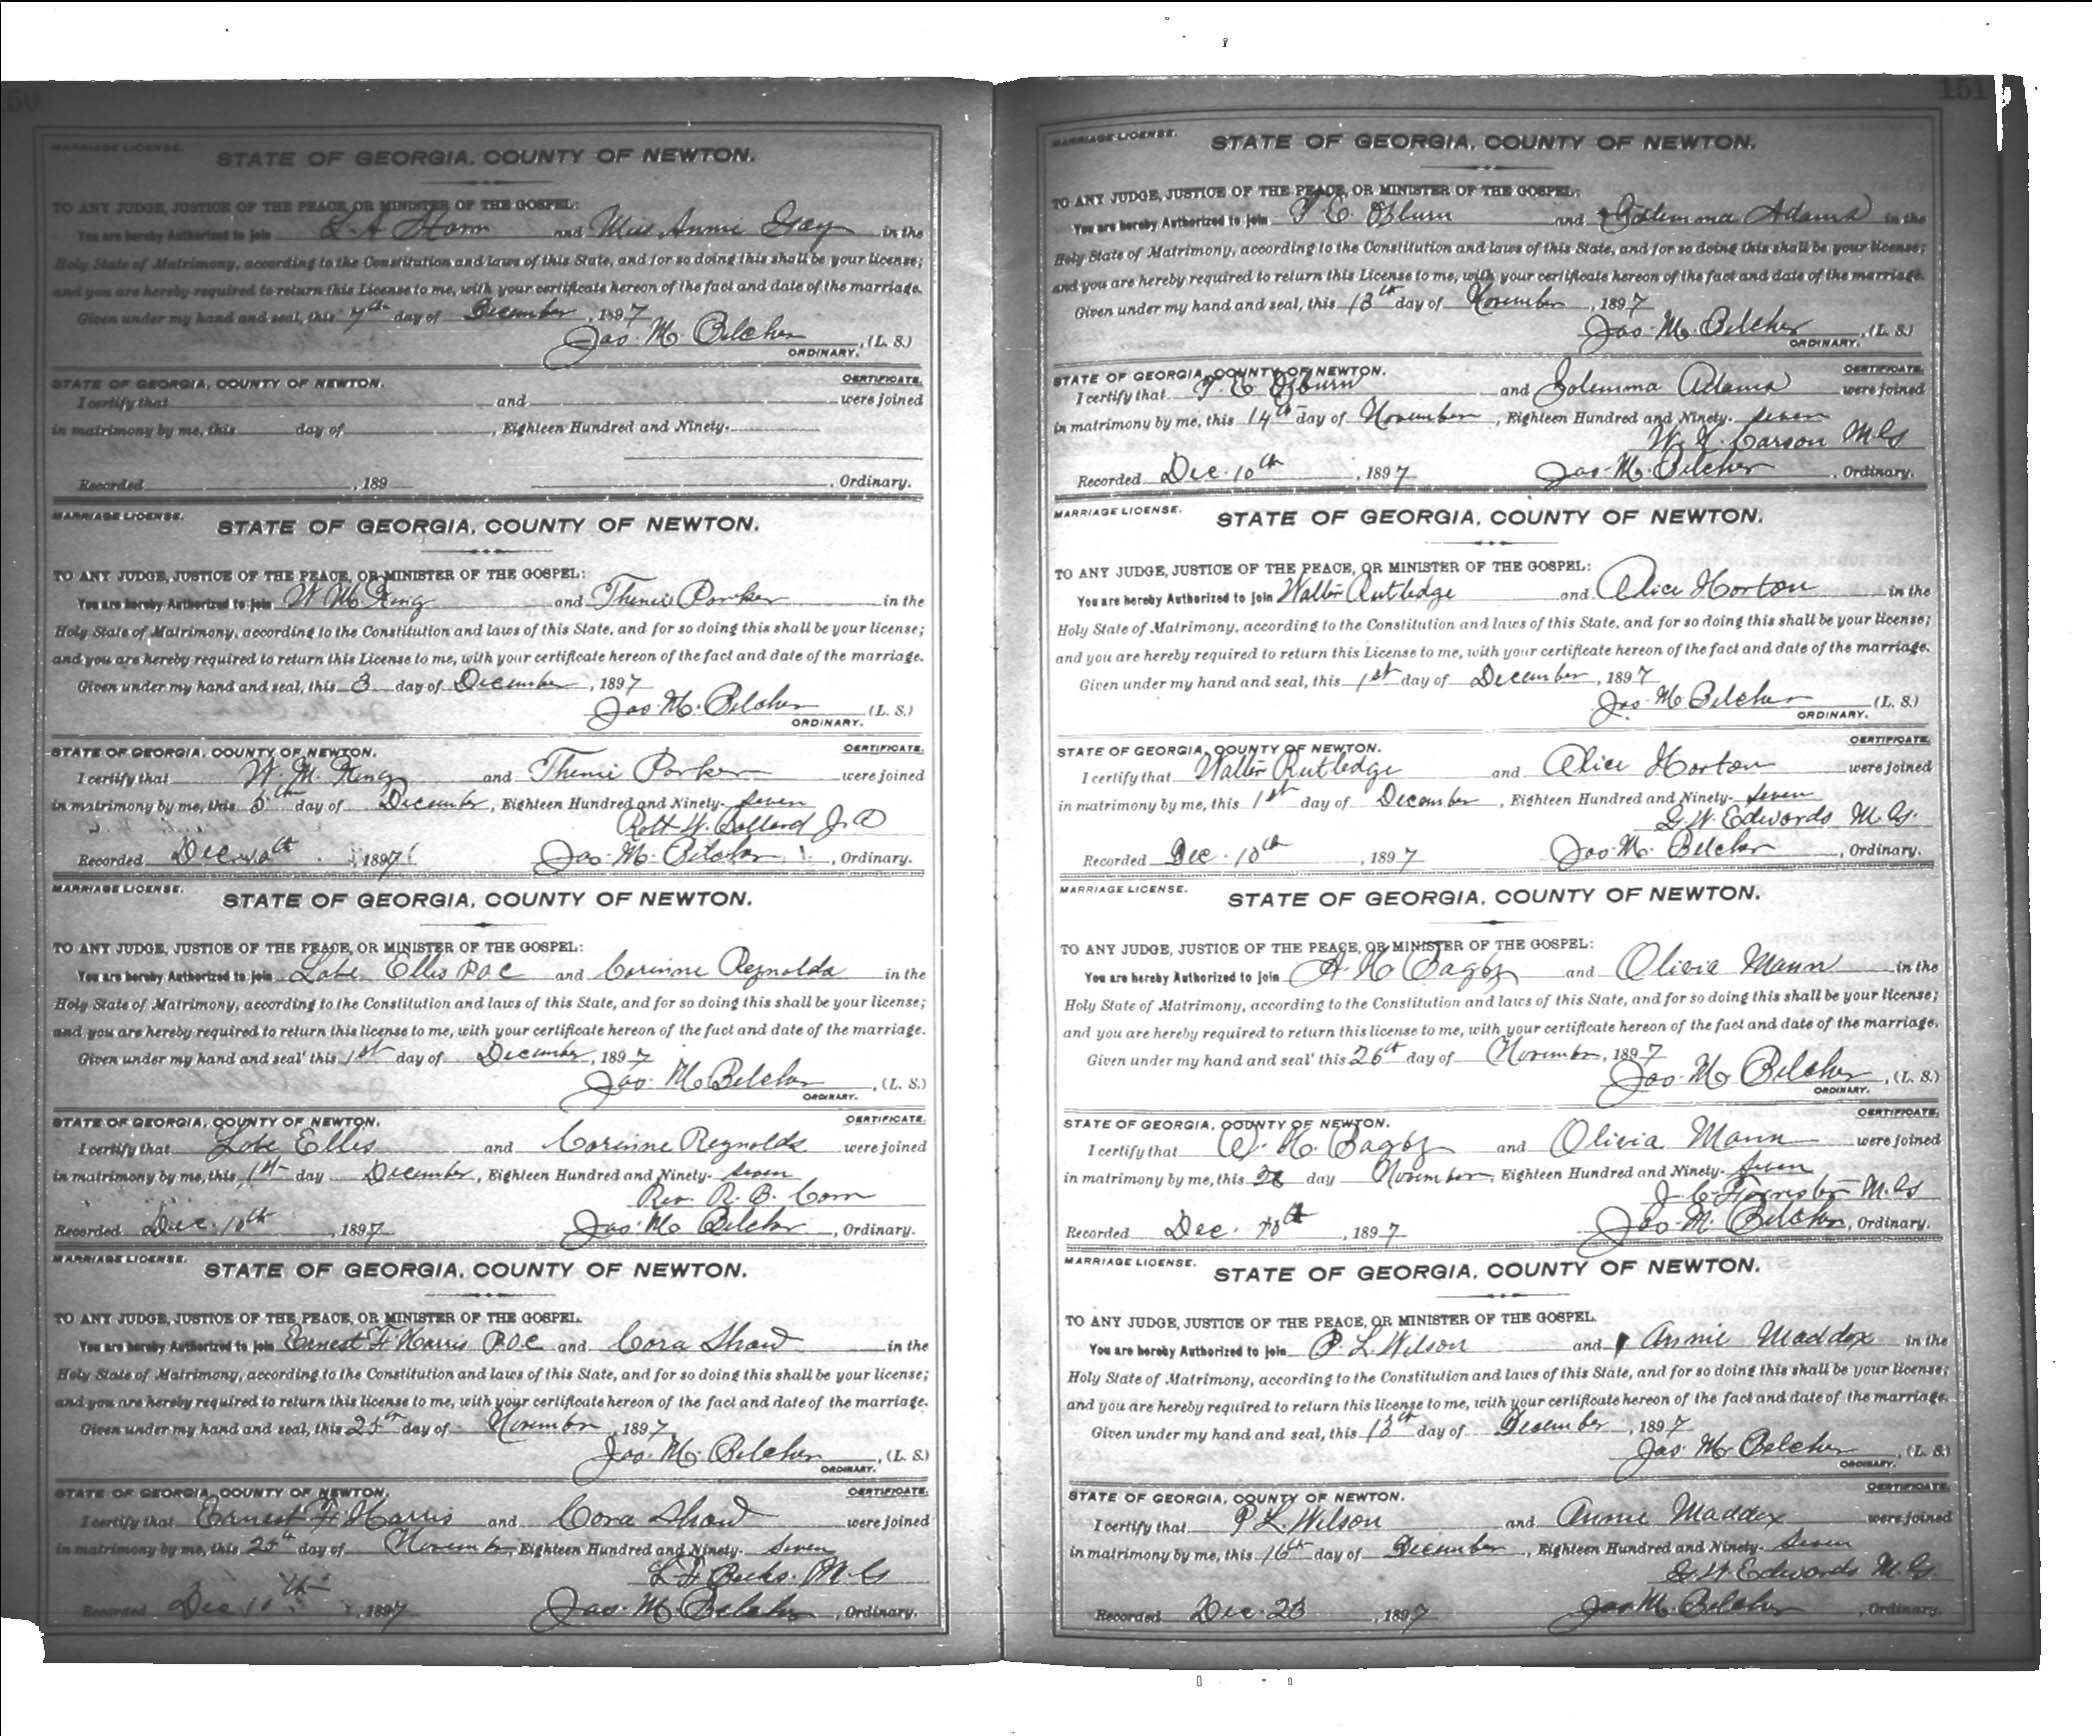 MARRIAGE LICENSE.
STATE OF GEORGIA, COUNTY OF NEWTON.
TO ANY JUDGE, JUSTICE OF THE PEACE, OR MINISTER OF THE GOSPEL:
You are hereby Authorized to join L. A and Miss Annie in the
Holy State of Matrimony, according to the Constitution and laws of this State, and for so doing this shall be your license;
and you are hereby required to return this License to me, with your certificate hereon of the fact and date of the marriage.
Given under my hand and seal, this 7th day of December, 1897
Jas. M. Belcher, (L. S.)
ORDINARY.
STATE OF GEORGIA, COUNTY OF NEWTON. CERTIFICATE.
I certify that and were joined
in matrimony by me, this day of , Eighteen Hundred and Ninety-
Recorded , 189 , Ordinary.
MARRIAGE LICENSE.
STATE OF GEORGIA, COUNTY OF NEWTON.
TO ANY JUDGE, JUSTICE OF THE PEACE, OR MINISTER OF THE GOSPEL:
You are hereby Authorized to join W M King and Thenie Parker in the
Holy State of Matrimony, according to the Constitution and laws of this State, and for so doing this shall be your license;
and you are hereby required to return this License to me, with your certificate hereon of the fact and date of the marriage.
Given under my hand and seal, this 3 day of December, 1897
Jas. M. Belcher (L. S.)
ORDINARY.
STATE OF GEORGIA, COUNTY OF NEWTON. CERTIFICATE.
I certify that W. M. King and Thenie Parker were joined
in matrimony by me, this 5th day of December, Eighteen Hundred and Ninety- seven
Robt W. Ballard
Recorded Dec 10th, 1897 Jas. M. Belcher, Ordinary.
MARRIAGE LICENSE.
STATE OF GEORGIA, COUNTY OF NEWTON.
TO ANY JUDGE, JUSTICE OF THE PEACE, OR MINISTER OF THE GOSPEL:
You are hereby Authorized to join Ellis P.O.C and Corinne Reynolds in the
Holy State of Matrimony, according to the Constitution and laws of this State, and for so doing this shall be your license;
and you are hereby required to return this license to me, with your certificate hereon of the fact and date of the marriage.
Given under my hand and seal' this 1st day of December, 1897
Jas. M. Belcher, (L. S.)
ORDINARY.
STATE OF GEORGIA, COUNTY OF NEWTON. CERTIFICATE.
I certify that Ellis and Corinne Reynolds were joined
in matrimony by me, this 1st day December, Eighteen Hundred and Ninety- seven
Rev. R. B.
Recorded Dec. 10th, 1897 Jas. M. Belcher, Ordinary.
MARRIAGE LICENSE.
STATE OF GEORGIA, COUNTY OF NEWTON.
TO ANY JUDGE, JUSTICE OF THE PEACE, OR MINISTER OF THE GOSPEL.
You are hereby Authorized to join Ernest F Harris P.O.C and Cora Shaw in the
Holy State of Matrimony, according to the Constitution and laws of this State, and for so doing this shall be your license;
and you are hereby required to return this license to me, with your certificate hereon of the fact and date of the marriage.
Given under my hand and seal, this 25th day of November, 1897
Jas. M. Belcher, (L. S.)
ORDINARY.
STATE OF GEORGIA, COUNTY OF NEWTON. CERTIFICATE.
I certify that Ernest F Harris and Cora Shaw were joined
in matrimony by me, this 25th day of November, Eighteen Hundred and Ninety- seven
M. G
Recorded Dec 10th, 1897 Jas. M. Belcher, Ordinary.
151
MARRIAGE LICENSE.
STATE OF GEORGIA, COUNTY OF NEWTON.
TO ANY JUDGE, JUSTICE OF THE PEACE, OR MINISTER OF THE GOSPEL:
You are hereby Authorized to join T. E. Ozburn and Adams in the
Holy State of Matrimony, according to the Constitution and laws of this State, and for so doing this shall be your license;
and you are hereby required to return this License to me, with your certificate hereon of the fact and date of the marriage.
Given under my hand and seal, this 13th day of November, 1897
Jas. M. Belcher, (L. S.)
ORDINARY.
STATE OF GEORGIA, COUNTY OF NEWTON. CERTIFICATE.
I certify that T. E Ozburn and Adams were joined
in matrimony by me, this 14th day of November, Eighteen Hundred and Ninety- seven
Carson M G
Recorded Dec. 10th, 1897 Jas. M. Belcher, Ordinary.
MARRIAGE LICENSE.
STATE OF GEORGIA, COUNTY OF NEWTON.
TO ANY JUDGE, JUSTICE OF THE PEACE, OR MINISTER OF THE GOSPEL:
You are hereby Authorized to join Walter Rutledge and Alice Horton in the
Holy State of Matrimony, according to the Constitution and laws of this State, and for so doing this shall be your license;
and you are hereby required to return this License to me, with your certificate hereon of the fact and date of the marriage.
Given under my hand and seal, this 1st day of December, 1897
Jas. M. Belcher (L. S.)
ORDINARY.
STATE OF GEORGIA, COUNTY OF NEWTON. CERTIFICATE.
I certify that Walter Rutledge and Alice Horton were joined
in matrimony by me, this 1st day of December, Eighteen Hundred and Ninety- seven
G. W. Edwards M. G.
Recorded Dec. 10th, 1897 Jas. M. Belcher, Ordinary.
MARRIAGE LICENSE.
STATE OF GEORGIA, COUNTY OF NEWTON.
TO ANY JUDGE, JUSTICE OF THE PEACE, OR MINISTER OF THE GOSPEL:
You are hereby Authorized to join A. H. Bagby and Olivia Mann in the
Holy State of Matrimony, according to the Constitution and laws of this State, and for so doing this shall be your license;
and you are hereby required to return this license to me, with your certificate hereon of the fact and date of the marriage.
Given under my hand and seal' this 26th day of November, 1897
Jas. M. Belcher, (L. S.)
ORDINARY.
STATE OF GEORGIA, COUNTY OF NEWTON. CERTIFICATE.
I certify that H. Bagby and Olivia Mann were joined
in matrimony by me, this 28 day November, Eighteen Hundred and Ninety- seven
J. C. Forrester M. G
Recorded Dec. 10th, 1897 Jas. M. Belcher, Ordinary.
MARRIAGE LICENSE.
STATE OF GEORGIA, COUNTY OF NEWTON.
TO ANY JUDGE, JUSTICE OF THE PEACE, OR MINISTER OF THE GOSPEL.
You are hereby Authorized to join P. L. Wilson and Annie Maddox in the
Holy State of Matrimony, according to the Constitution and laws of this State, and for so doing this shall be your license;
and you are hereby required to return this license to me, with your certificate hereon of the fact and date of the marriage.
Given under my hand and seal, this 13th day of December, 1897
Jas. M. Belcher, (L. S.)
ORDINARY.
STATE OF GEORGIA, COUNTY OF NEWTON. CERTIFICATE.
I certify that P L. Wilson and Annie Maddox were joined
in matrimony by me, this 16th day of December, Eighteen Hundred and Ninety- seven
G. W. Edwards M. G.
Recorded Dec. 23, 1897 Jas. M. Belcher, Ordinary.